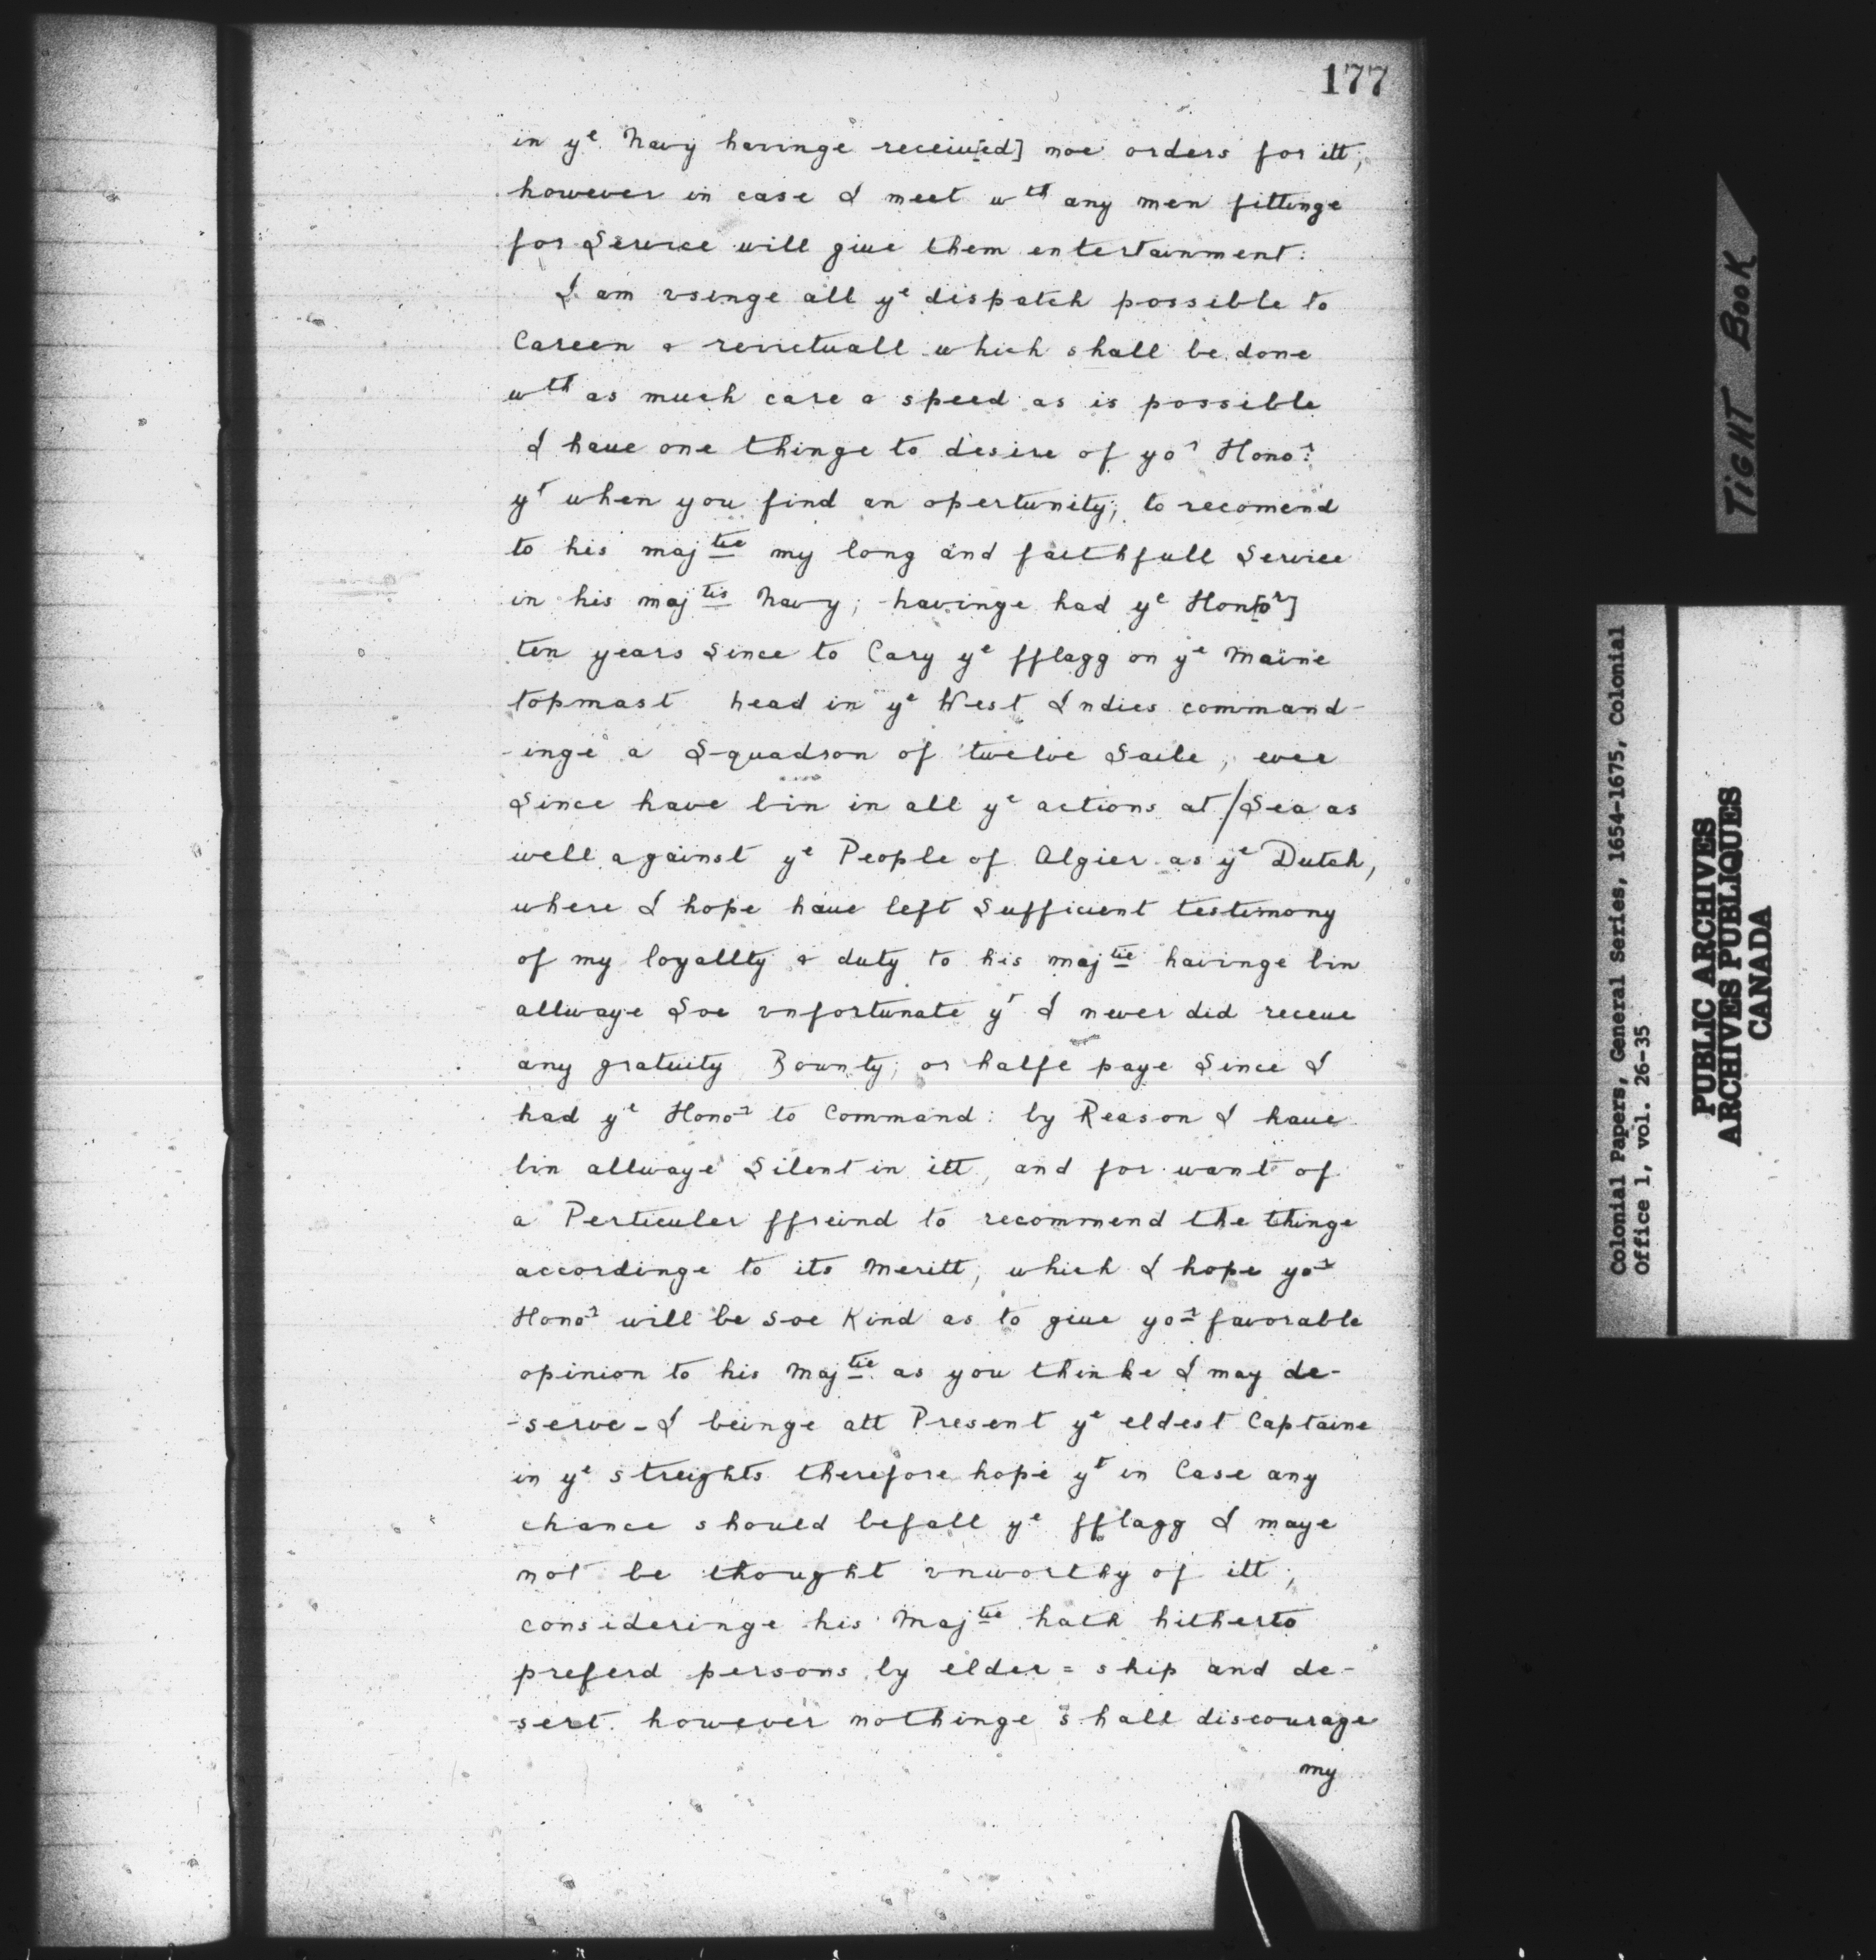 177
in yᵉ Navy havinge receiu[ed] noe orders for itt;
however in case I meet wᵗʰ any men fittinge
for Service will giue them entertainment:
I am vsinge all yᵉ dispatch possible to
Careen & reuictuall which shall be done
wᵗʰ as much care & speed as is possible
I haue one thinge to desire of yoʳ Honoʳ:
yᵗ when you find an opertunity; to recomend
to his majᵗⁱᵉ my long and faithfull Service
in his majᵗⁱˢ Navy; havinge had yᵉ Hon[oʳ]
ten years Since to Cary yᵉ fflagg on yᵉ Maine
topmast head in yᵉ West Indies command-
-inge a Squadron of twelve Saile, ever
Since have bin in all yᵉ actions at/Sea as
well against yᵉ People of Algier as yᵉ Dutch,
where I hope haue left Sufficient testimony
of my loyallty & duty to his majᵗⁱᵉ havinge bin
allwaye Soe vnfortunate yᵗ I never did receue
any gratuity Bounty; or halfe paye Since I
had yᵉ Honoʳ to Command: by Reason I haue
bin allwaye Silent in itt, and for want of
a Perticuler ffreind to recommend the thinge
accordinge to its Meritt, which I hope yoʳ
Honoʳ will be Soe Kind as to giue yoʳ favorable
opinion to his Majᵗⁱᵉ as you thinke I may de-
-serve - I beinge att Present yᵉ eldest Captaine
in yᵉ streights therefore hope yᵗ in Case any
chance should befall yᵉ fflagg I maye
not be thought vnworthy of itt;
consideringe his Majᵗⁱᵉ hath hitherto
preferd persons by elder = ship and de-
-sert. however nothinge shall discourage
my
TIGHT BOOK
Colonial Papers, General Series, 1654-1675, Colonial
Office 1, vol. 26-35
PUBLIC ARCHIVES
ARCHIVES PUBLIQUES
CANADA